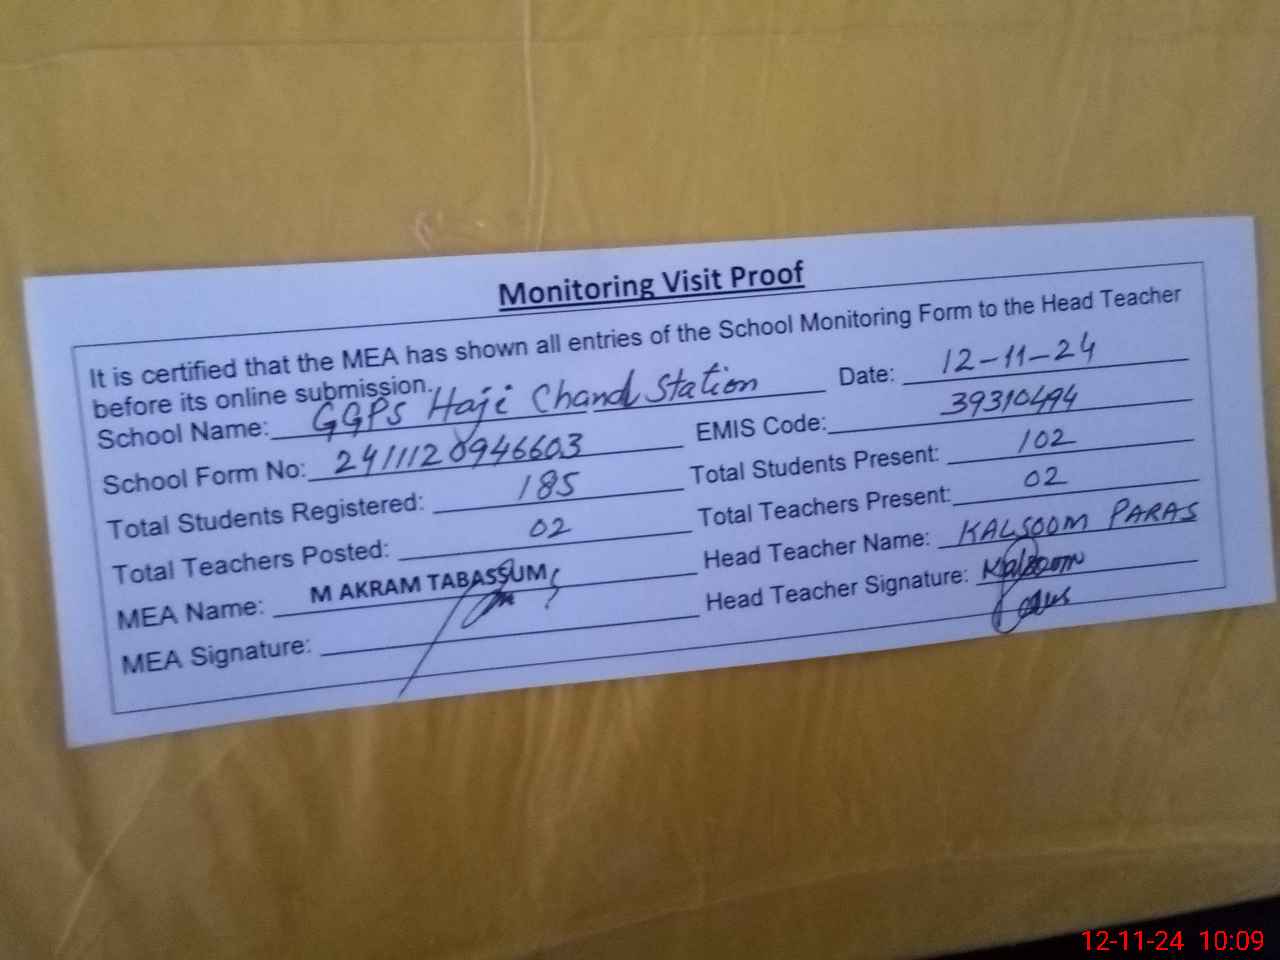 Monitoring Visit Proof
It is certified that the MEA has shown all entries of the School Monitoring Form to the Head Teacher
before its online submission.
School Name: GGPS Haji Chand Station Date: 12-11-24
School Form No: 2411120946603 EMIS Code: 39310494
Total Students Registered: 185 Total Students Present: 102
Total Teachers Posted: 02 Total Teachers Present: 02
MEA Name: M AKRAM TABASSUM Head Teacher Name: KALSOOM PARAS
MEA Signature: Head Teacher Signature: Kalsoom
Paras
12-11-24 10:09